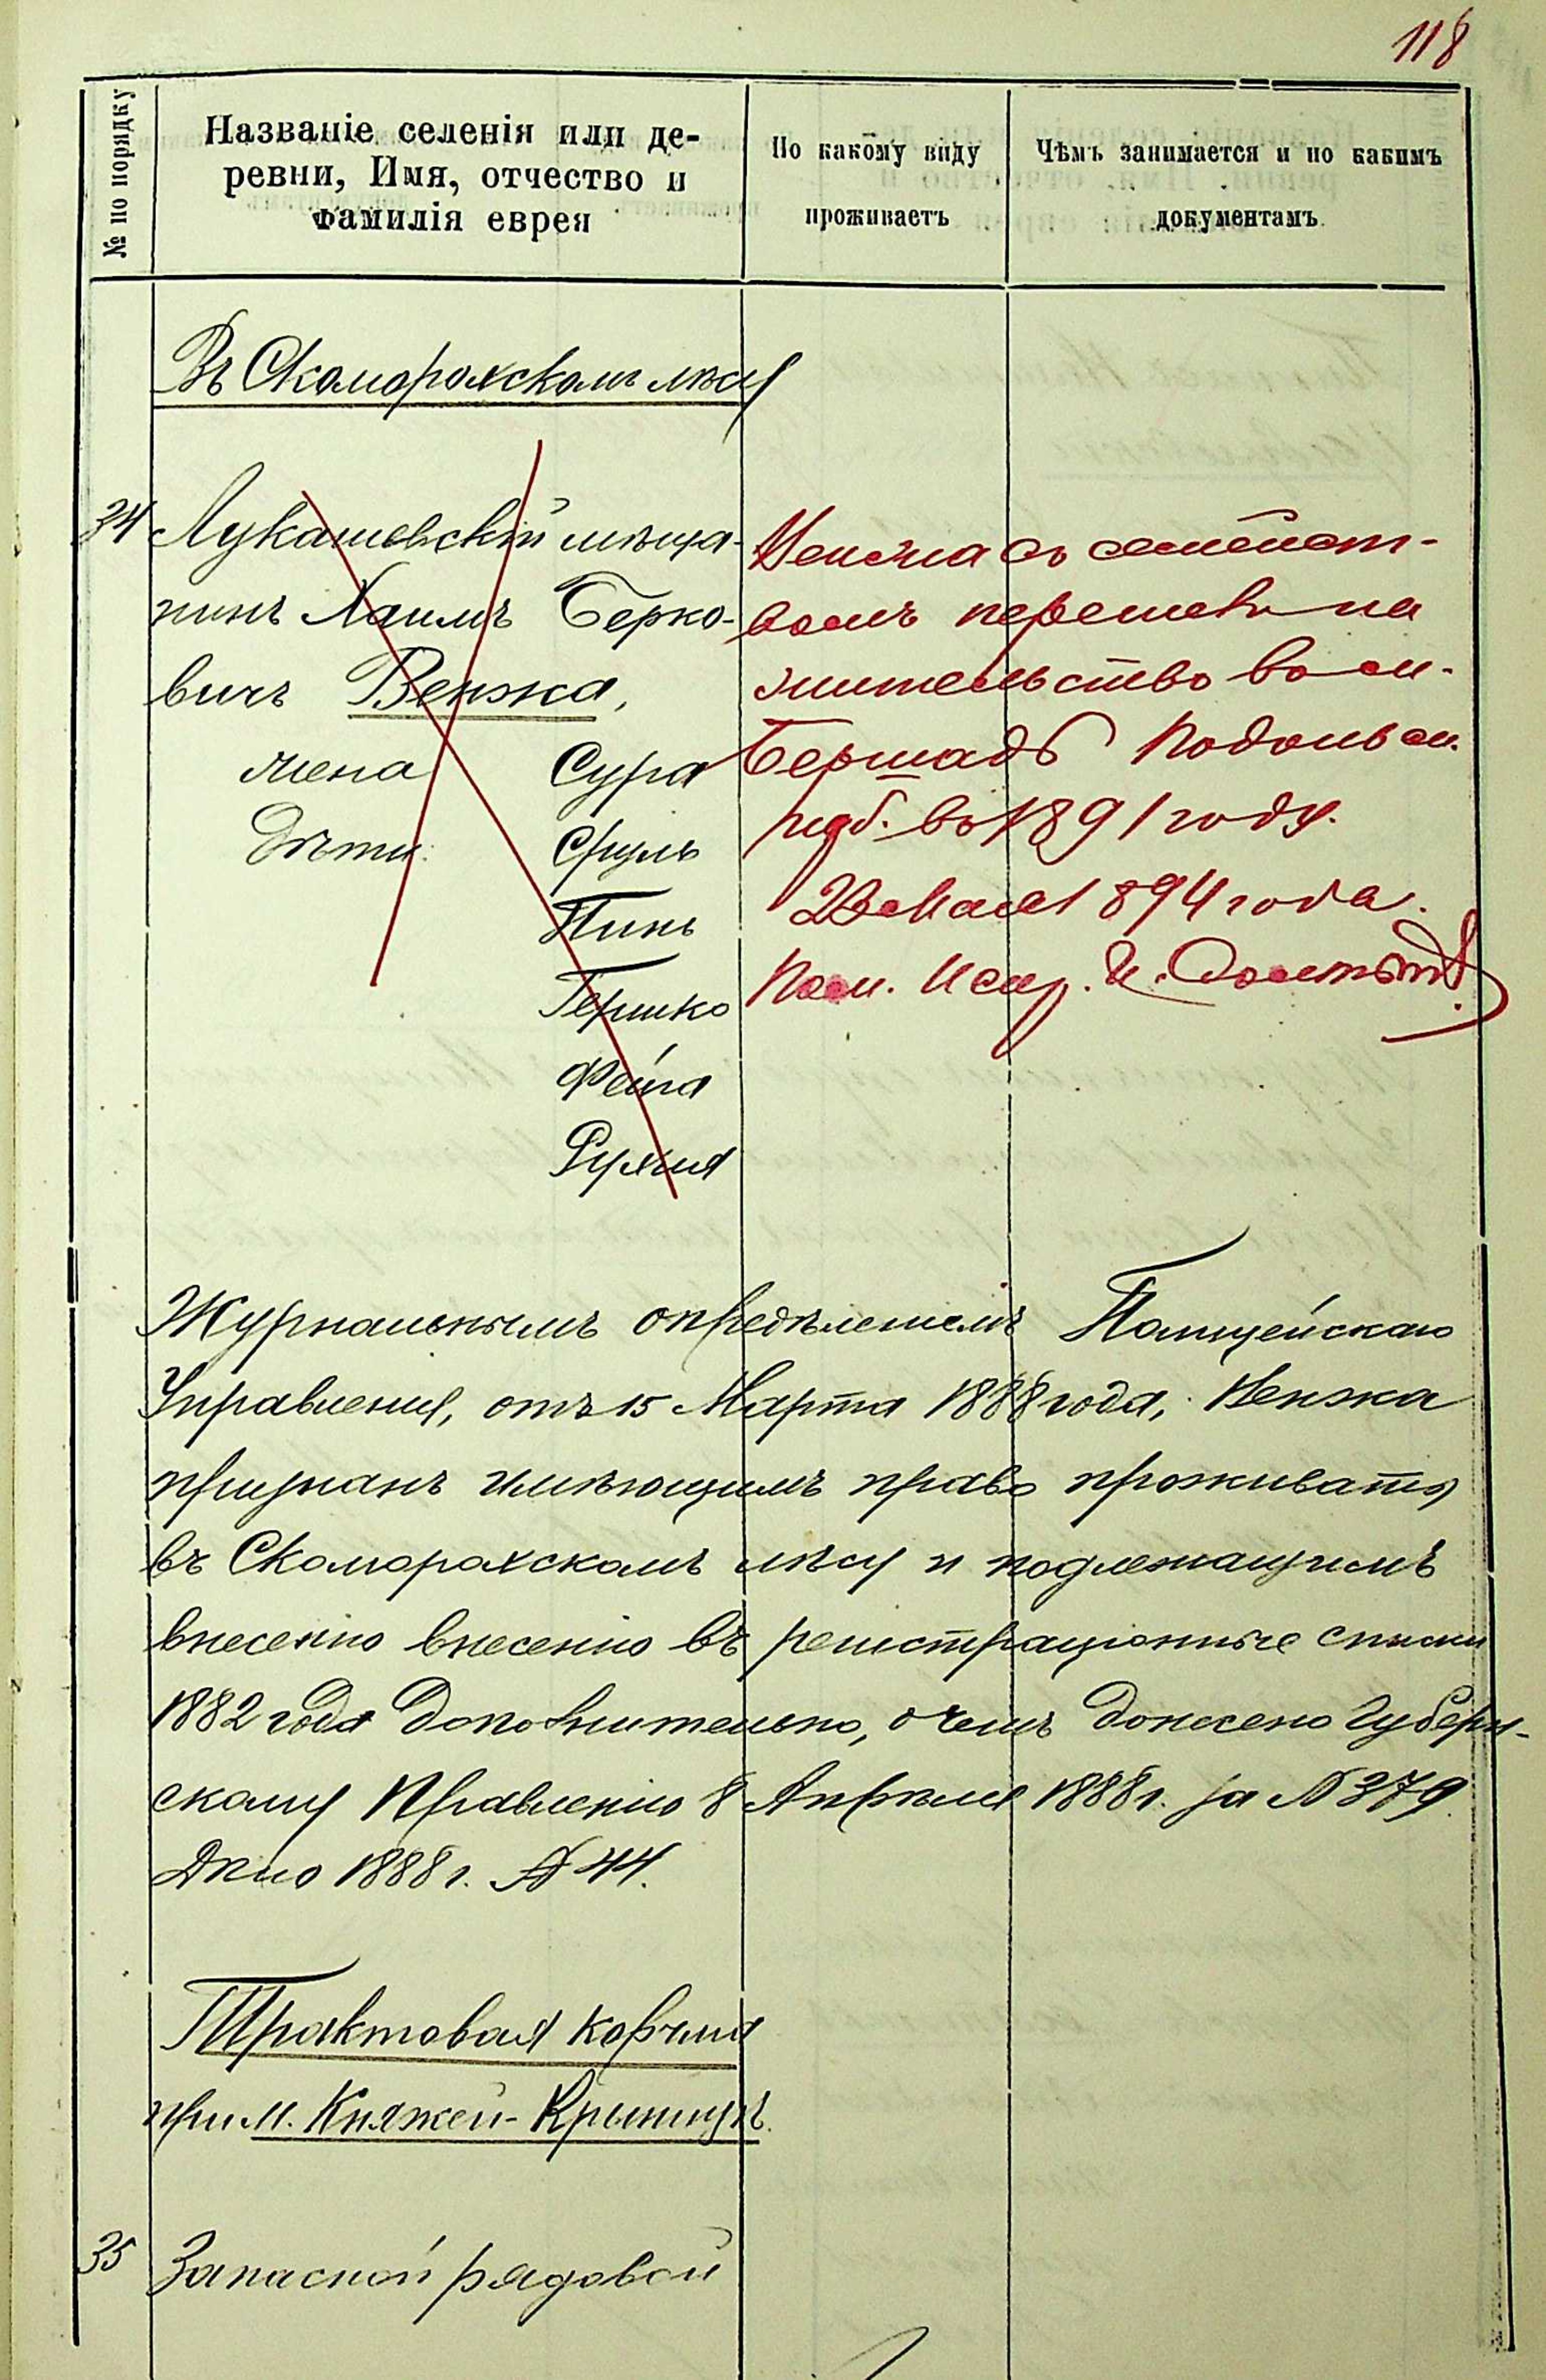 118
№ по порядку
Названіе селенія или де-
ревни, Имя, отчество и
фамилія еврея
По какому виду
проживаетъ
Чѣмъ занимается и по какимъ
документамъ.
Въ Скоморохскомъ лѣсу
34
Лукашевскій мѣща-
нинъ Хаимъ Берко-
вичъ Венжа,
жена Сура
Дѣти: Сруль
Пинь
Гершко
Фейга
Рухля
Венжа съ семейст-
вомъ перешелъ на
жительство въ м.
Бершадь Подольск.
губ. въ 1891 году.
23 Мая 1894 года.
Пом. Испр. И.
Журнальнымъ опредѣленіемъ Полицейскаго
Управленія, отъ 15 Марта 1888 года, Венжа
признанъ имѣющимъ право проживать
въ Скоморохскомъ лѣсу и подлежащимъ
внесенію внесенію въ регистраціонные списки
1882 года дополнительно, о чемъ донесено Губерн-
скому Правленію 8 Апрѣля 1888 г. за № 379.
Дѣло 1888 г. № 44.
Трактовая корчма
при м. Княжей-Крыницѣ.
35
Запасной рядовой